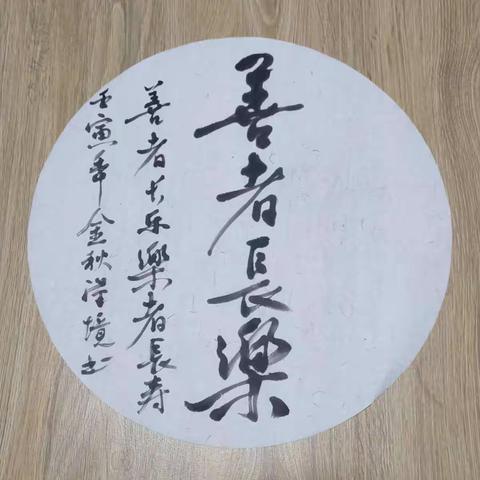 善者長樂
善者长乐樂者長寿
壬寅年金秋漢境书